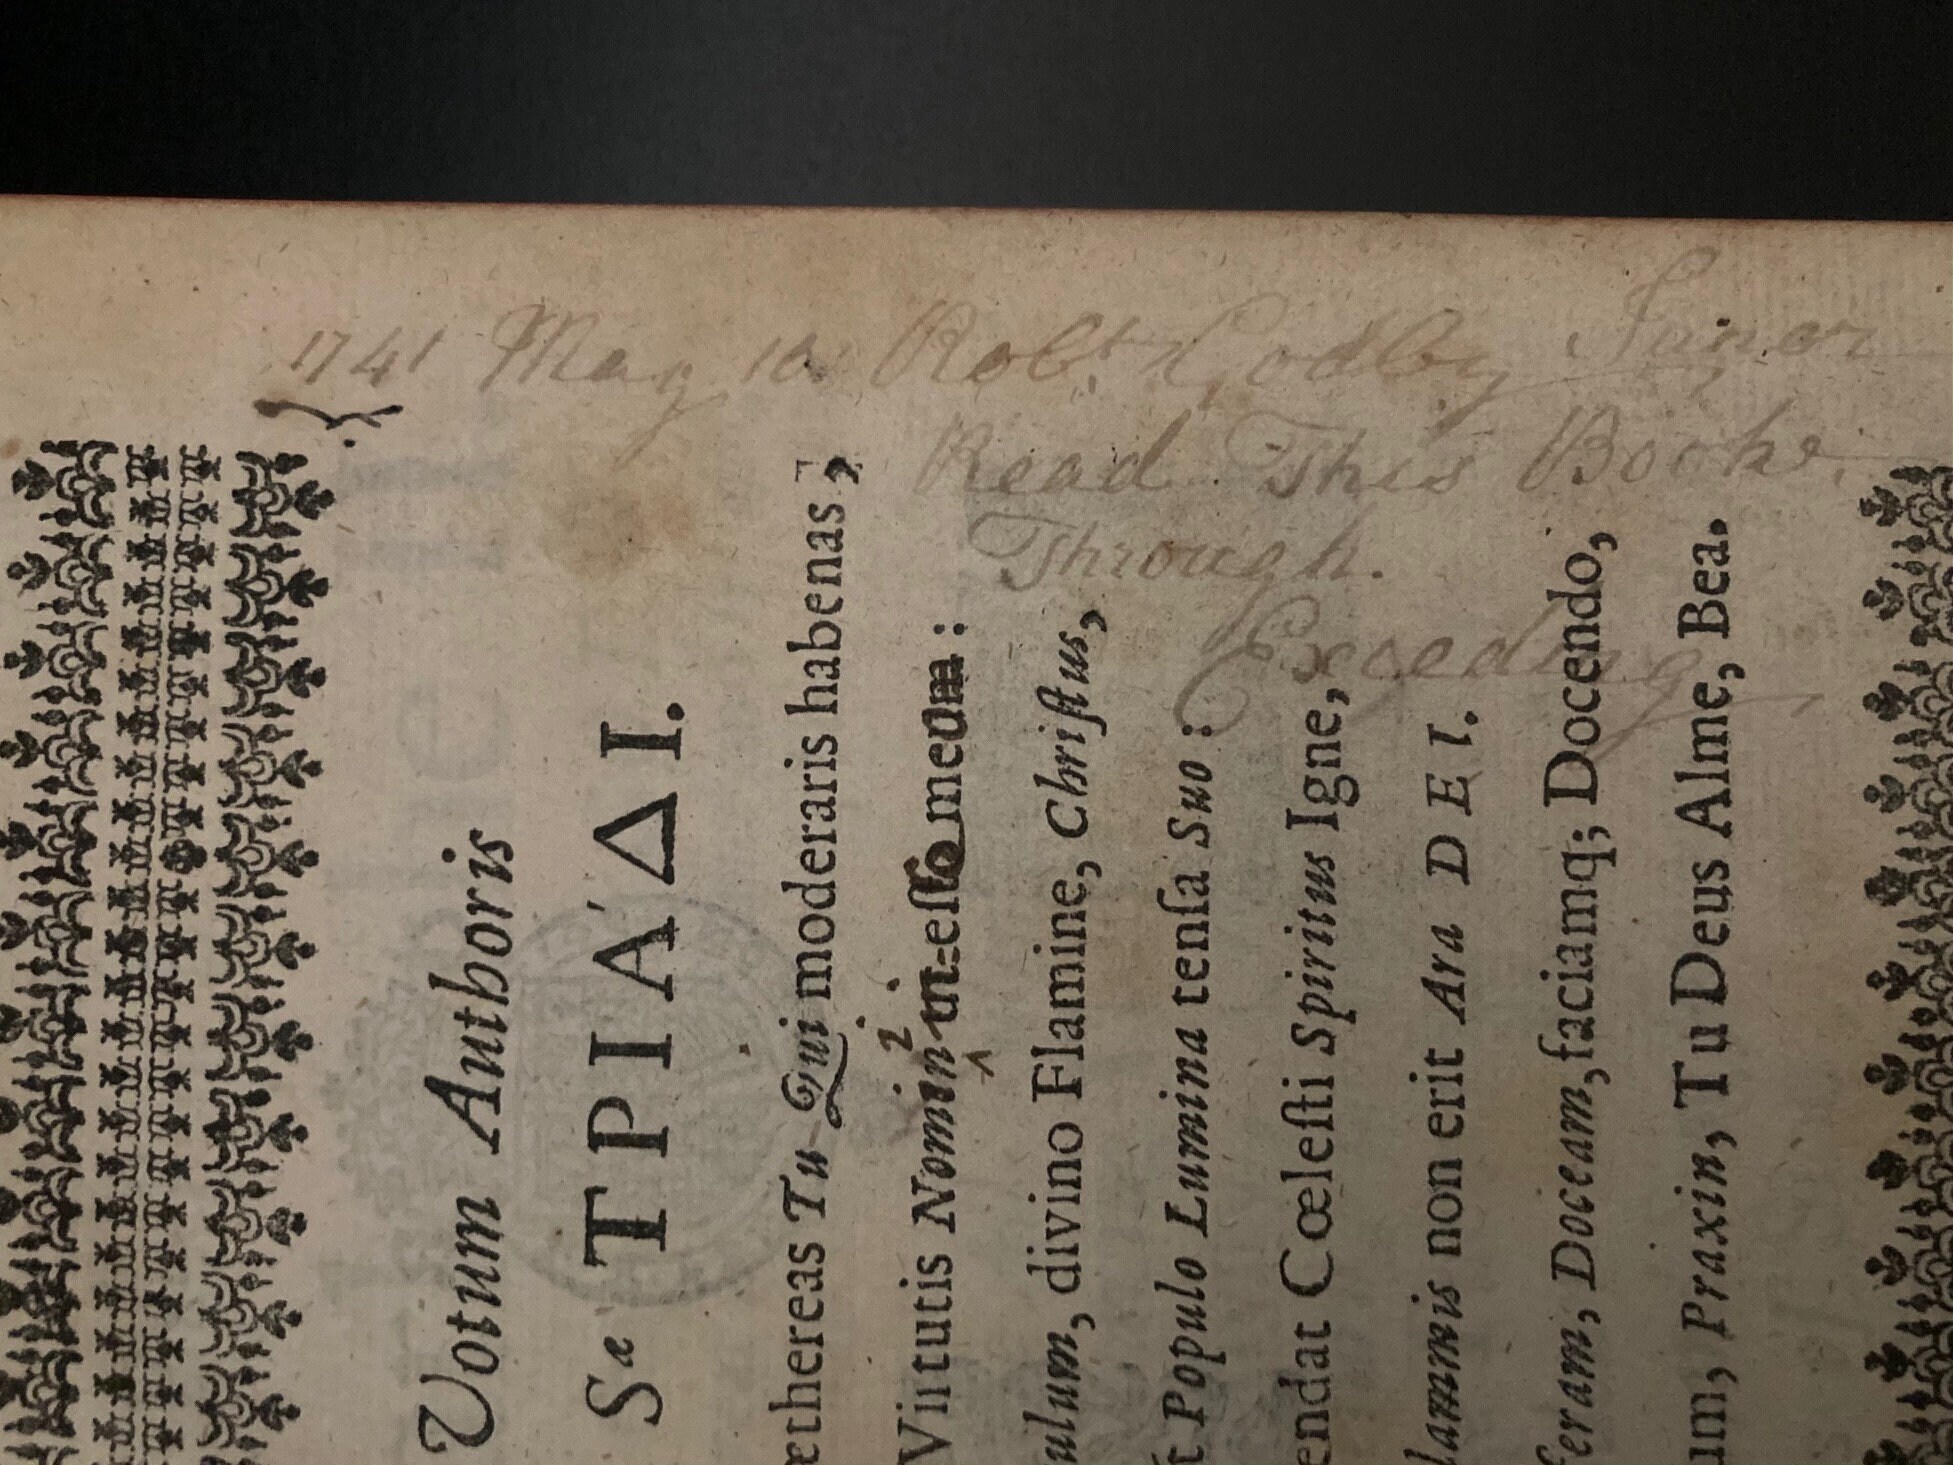 1741 May 10 Robt Godby Junor
Read This Booke
Through.
Exceeding
Votum Authoris
Sæ ΤΡΙΆΔΙ.
æthereas Tu Qui moderaris habenas,
Virtutis Nomen in esse meum:
ulum, divino Flamine, Christus,
t Populo Lumina tensa Suo:
endat Cœlesti Spiritus Igne,
lammis non erit Ara DEI.
feram, Doceam, faciamq; Docendo,
um, Praxin, Tu Deus Alme, Bea.